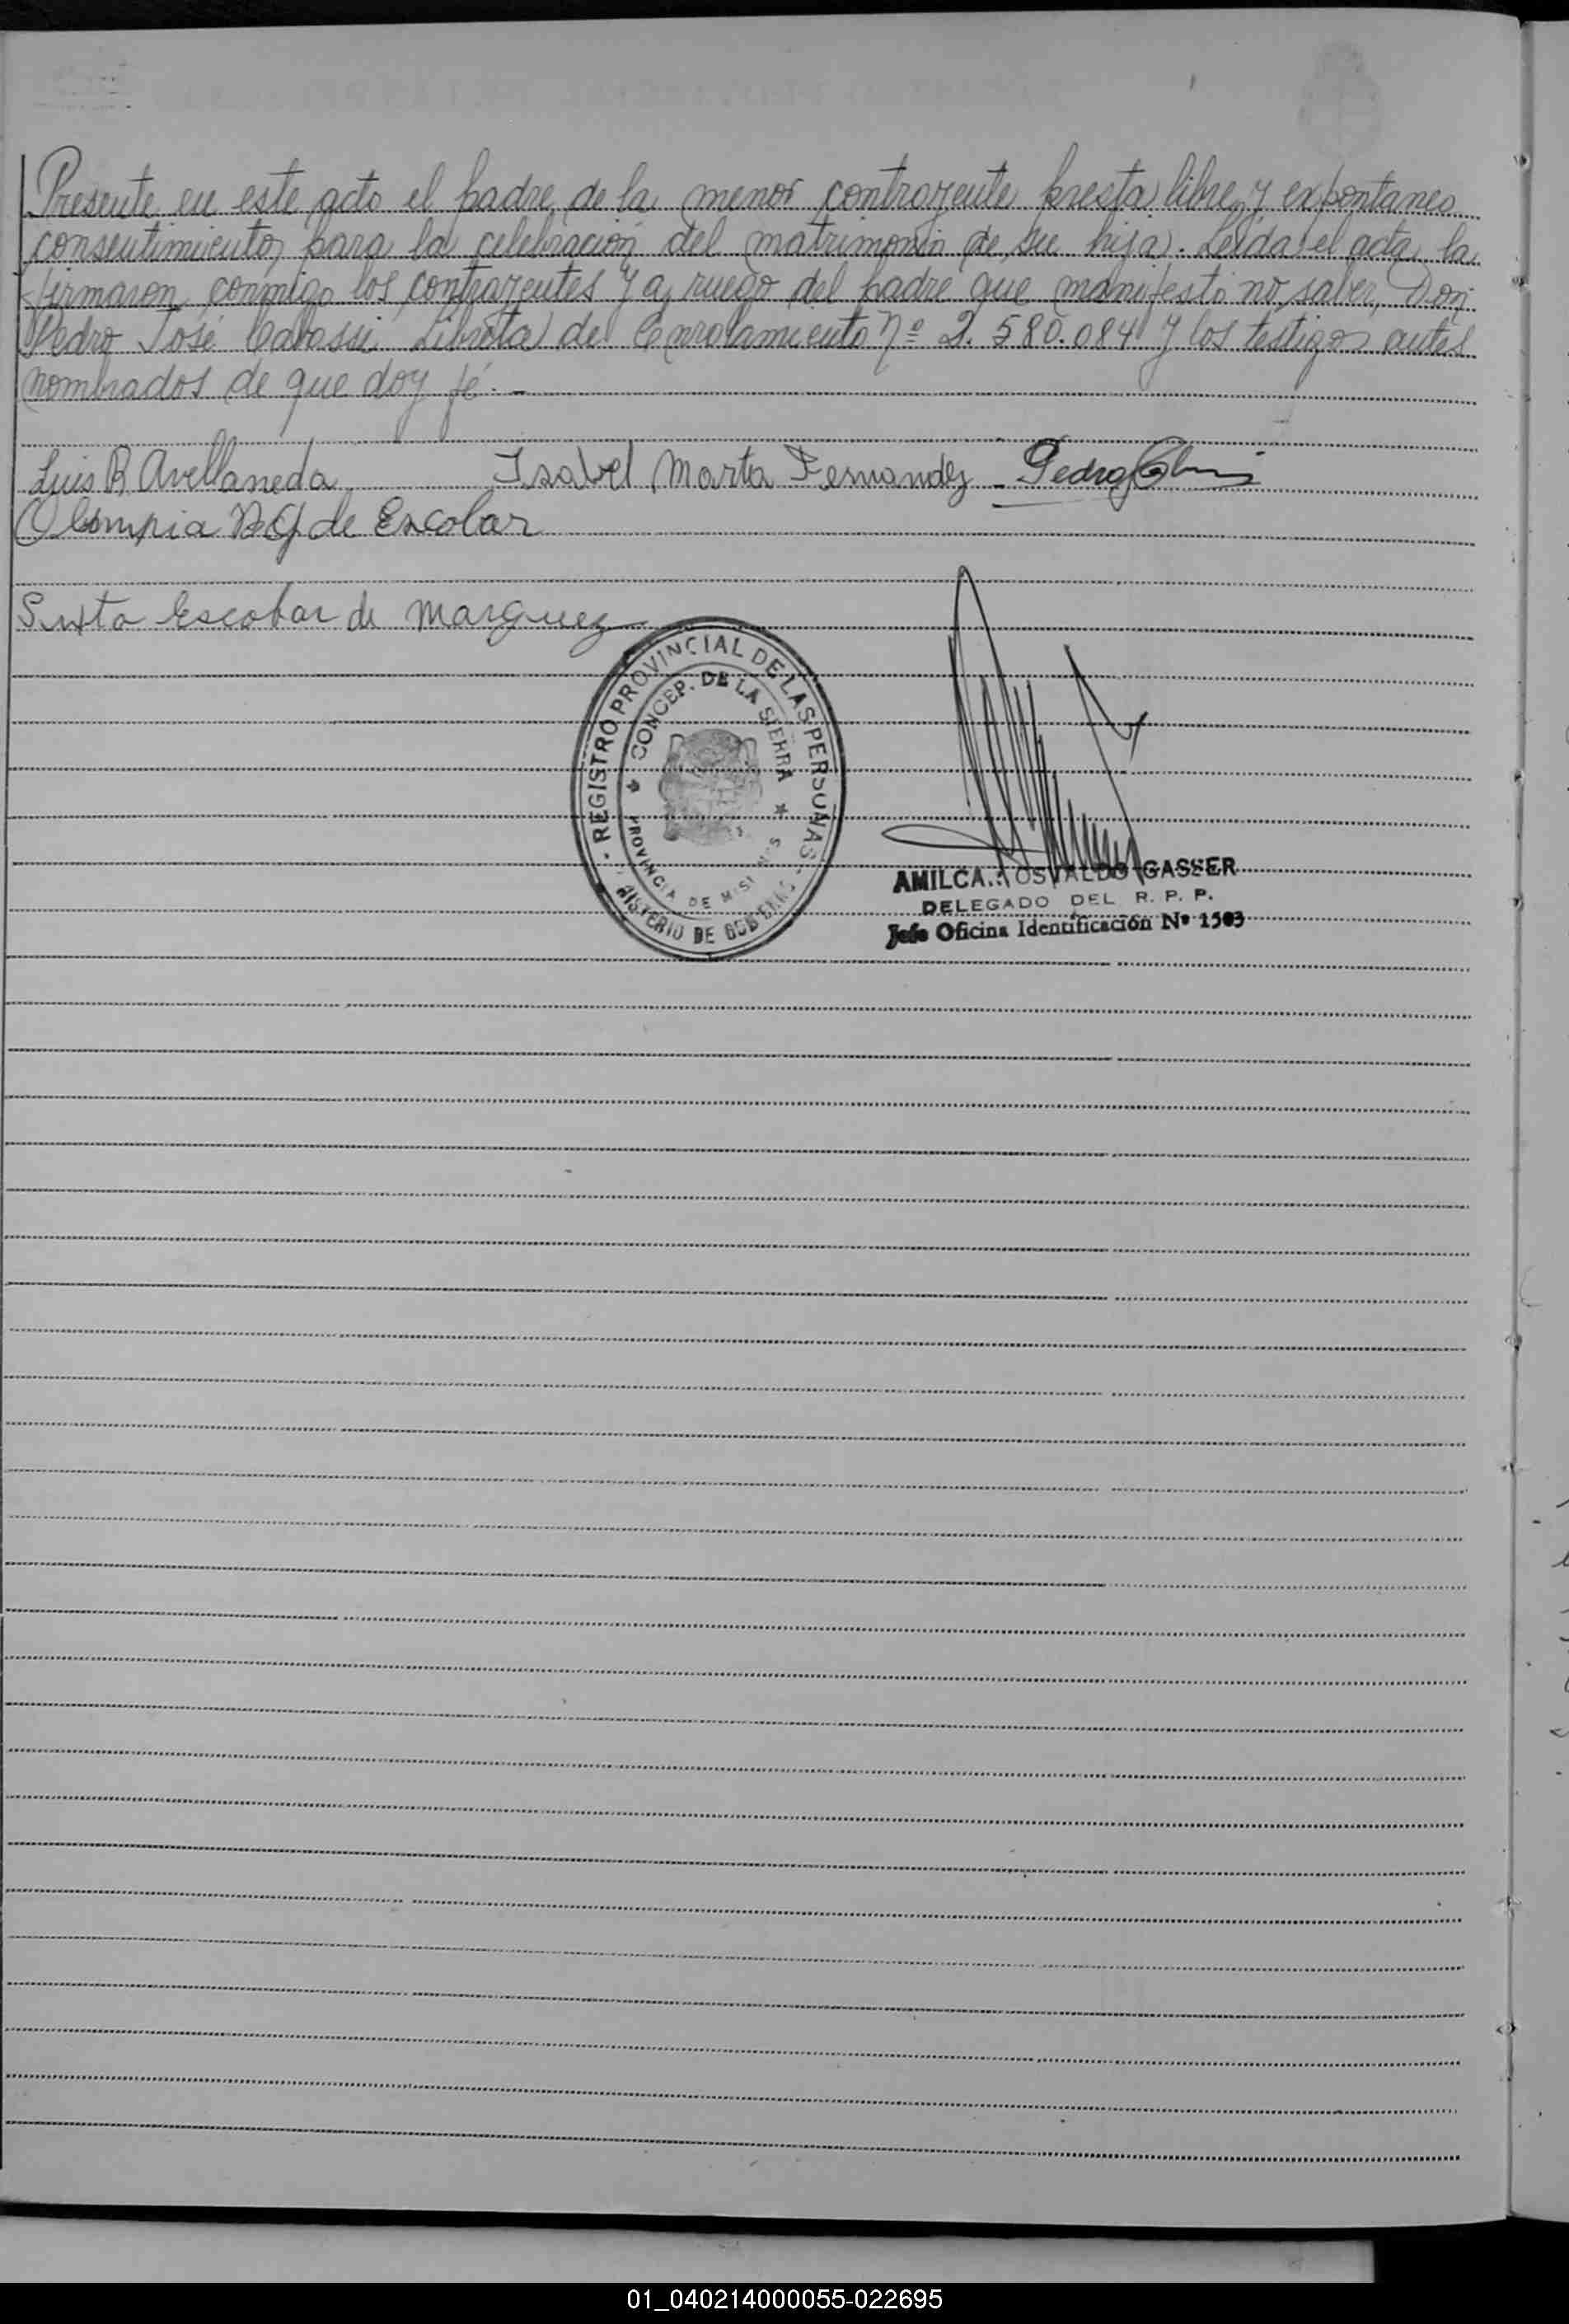 Presente en este acto el padre de la menor contrayente presta libre y expontaneo
consentimiento para la celebración del matrimonio de su hija. Leida el acta la
firmaron conmigo los contrayentes y a ruego del padre que manifestó no saber, Don
Pedro José Libreta de Enrolamiento Nº 2.580.084 y los testigos antes
nombrados de que doy fé. -
Luis R Avellaneda Isabel Marta Fernandez - Pedro
Olimpia de Escobar
Sixta Escobar de Marquez
- REGISTRO PROVINCIAL DE LAS PERSONAS -
CONCEP. DE LA SIERRA
PROVINCIA DE MISIONES
AMILCA OSVALDO GASSER
DELEGADO DEL R. P. P.
Jefe Oficina Identificación Nº 1503
01_040214000055-022695